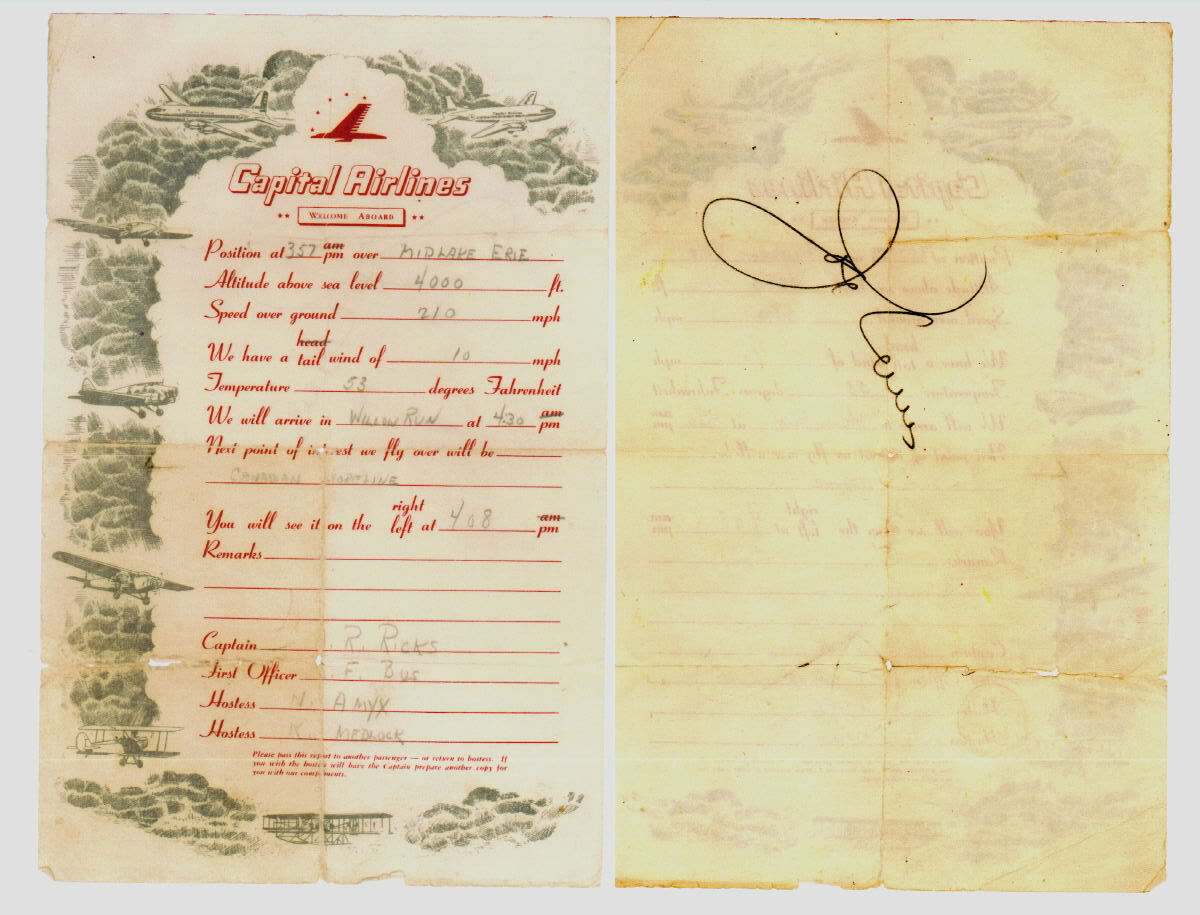 Capital Airlines
★★ WELCOME ABOARD ★★
Position at 357 am pm over MIDLAKE ERIE
Altitude above sea level 4000 ft.
Speed over ground 210 mph
We have a head tail wind of 10 mph
Temperature 53 degrees Fahrenheit
We will arrive in WILLOW RUN at 4:30 am pm
Next point of interest we fly over will be
CANADIAN SHORELINE
You will see it on the right left at 408 am pm
Remarks
Captain R. RICKS
First Officer F. BUS
Hostess N. AMYX
Hostess K. MEDLOCK
Please pass this report to another passenger — or return to hostess. If
you wish the hostess will have the Captain prepare another copy for
you with our compliments.